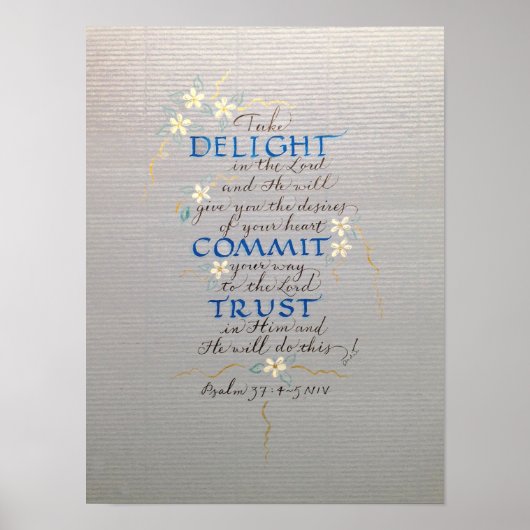 Take
DELIGHT
in the Lord
and He will
give you the desires
of your heart
COMMIT
your way
to the Lord
TRUST
in Him and
He will do this!
Psalm 37:4~5 NIV